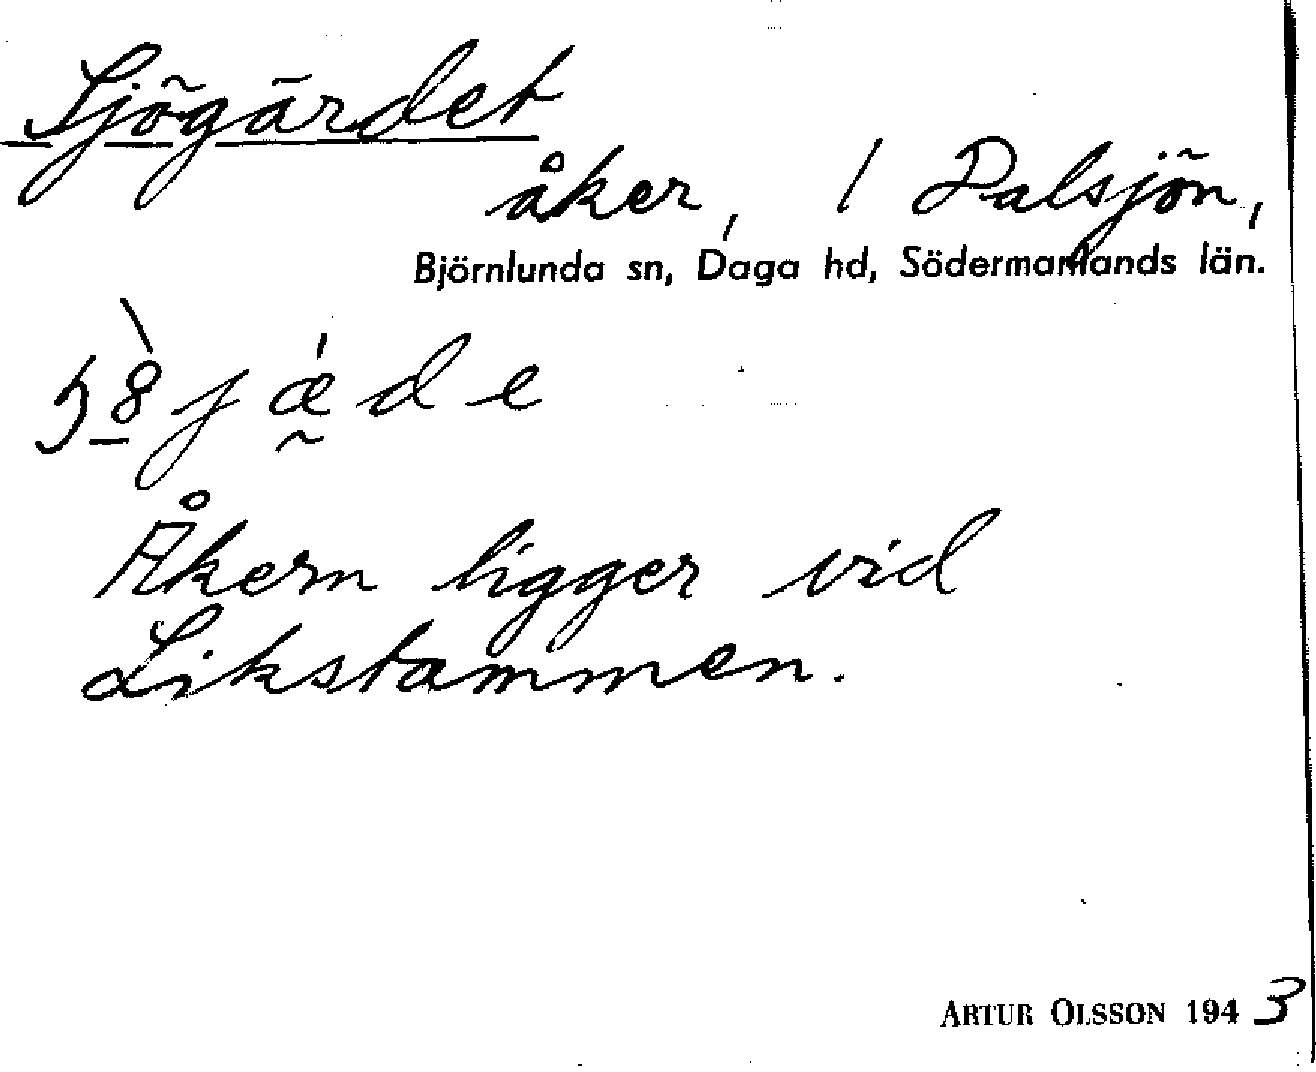 Sjögärdet
åker, / Dalsjön,
Björnlunda sn, Daga hd, Södermanlands län.
Åkern ligger vid
Likstammen.
ARTUR OLSSON 1943